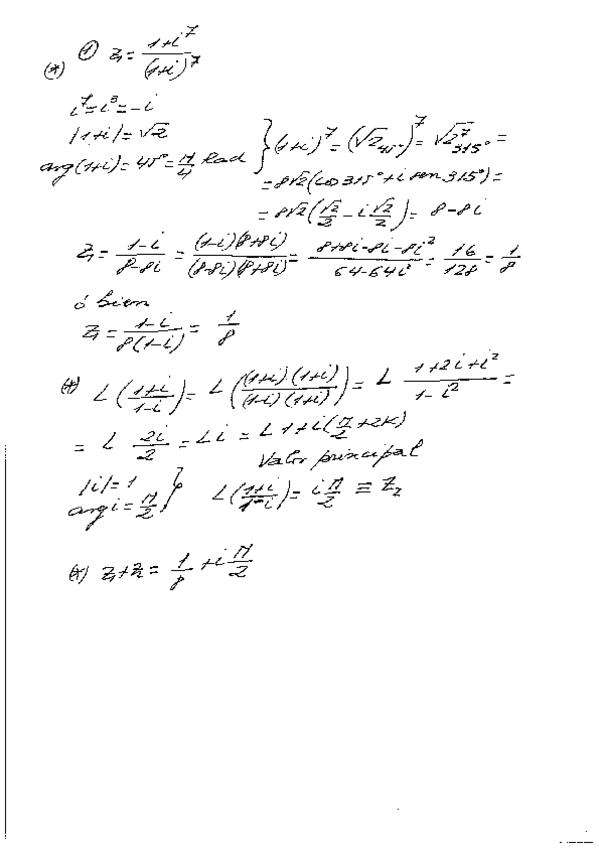 (*) ① z₁ = (1+i⁷)/(1+i)⁷
i⁷=i³=-i
|1+i|=√2
arg(1+i)=45°=π/4 rad } (1+i)⁷=(√2₄₅°)⁷=√2⁷₃₁₅°=
=8√2(cos315°+i sen 315°)=
=8√2(√2/2 - i√2/2)= 8-8i
z₁= (1-i)/(8-8i) = (1-i)(8+8i)/(8-8i)(8+8i) = (8+8i-8i-8i²)/(64-64i²) = 16/128 = 1/8
ó bien
z₁= (1-i)/8(1-i) = 1/8
(*) L((1+i)/(1-i))= L((1+i)(1+i)/(1-i)(1+i))= L (1+2i+i²)/(1-i²) =
= L 2i/2 = Li = L1+i(π/2+2K)
Valor principal
|i|=1
arg i=π/2 } L((1+i)/(1-i))= iπ/2 ≡ Z₂
(*) z₁+z₂= 1/8 +iπ/2